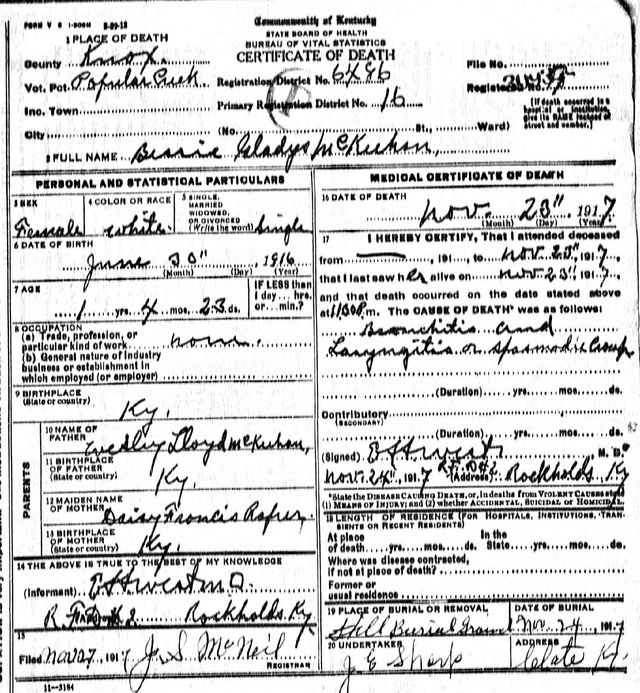 FORM V S 1-500M 8-29-18
Commonwealth of Kentucky
STATE BOARD OF HEALTH
BUREAU OF VITAL STATISTICS
CERTIFICATE OF DEATH
1 PLACE OF DEATH
County Knox
Vot. Pct. Popular Creek Registration District No. 6486
File No.
Registered No.
Inc. Town Primary Registration District No. 16
[If death occurred in a hospital or institution, give its NAME instead of street and number.]
City (No. St., Ward)
2 FULL NAME Bessie Gladys McKeehan,
PERSONAL AND STATISTICAL PARTICULARS
3 SEX Female
4 COLOR OR RACE white
5 SINGLE, MARRIED, WIDOWED, OR DIVORCED (Write the word) Single
6 DATE OF BIRTH
June 30" 1916
(Month) (Day) (Year)
7 AGE
1 yrs. 4 mos. 23 ds.
IF LESS than 1 day... hrs. or... min.?
8 OCCUPATION
(a) Trade, profession, or particular kind of work none.
(b) General nature of industry business or establishment in which employed (or employer)
9 BIRTHPLACE
(State or country) Ky.
PARENTS
10 NAME OF FATHER Wesley Lloyd McKeehan,
11 BIRTHPLACE OF FATHER (State or country) Ky.
12 MAIDEN NAME OF MOTHER Daisy Francis
13 BIRTHPLACE OF MOTHER (State or country) Ky.
14 THE ABOVE IS TRUE TO THE BEST OF MY KNOWLEDGE
(Informant) West M D
Rockholds. Ky
15
Filed Nov 27, 1917 J. S. McNeil
REGISTRAR
11-3184
MEDICAL CERTIFICATE OF DEATH
16 DATE OF DEATH
Nov. 23" 1917
(Month) (Day) (Year)
17 I HEREBY CERTIFY, That I attended deceased
from , 191 , to Nov. 23", 1917,
that I last saw her alive on Nov. 23", 1917,
and that death occurred on the date stated above
at m. The CAUSE OF DEATH* was as follows:
Bronchitis and
Laryngitis or Spasmodic Croup
(Duration) yrs. mos. ds.
Contributory
(SECONDARY)
(Duration) yrs. mos. ds.
(Signed) West M. D.
Nov. 24", 1917 (Address) Rockholds, Ky
*State the DISEASE CAUSING DEATH, or, in deaths from VIOLENT CAUSES state
(1) MEANS OF INJURY; and (2) whether ACCIDENTAL, SUICIDAL or HOMICIDAL.
18 LENGTH OF RESIDENCE (FOR HOSPITALS, INSTITUTIONS, TRANSIENTS OR RECENT RESIDENTS)
At place of death yrs. mos. ds. In the State yrs. mos. ds.
Where was disease contracted, if not at place of death?
Former or usual residence
19 PLACE OF BURIAL OR REMOVAL
Burial Ground
DATE OF BURIAL
Nov. 24, 1917
20 UNDERTAKER
J E Sharp
ADDRESS
Ky.